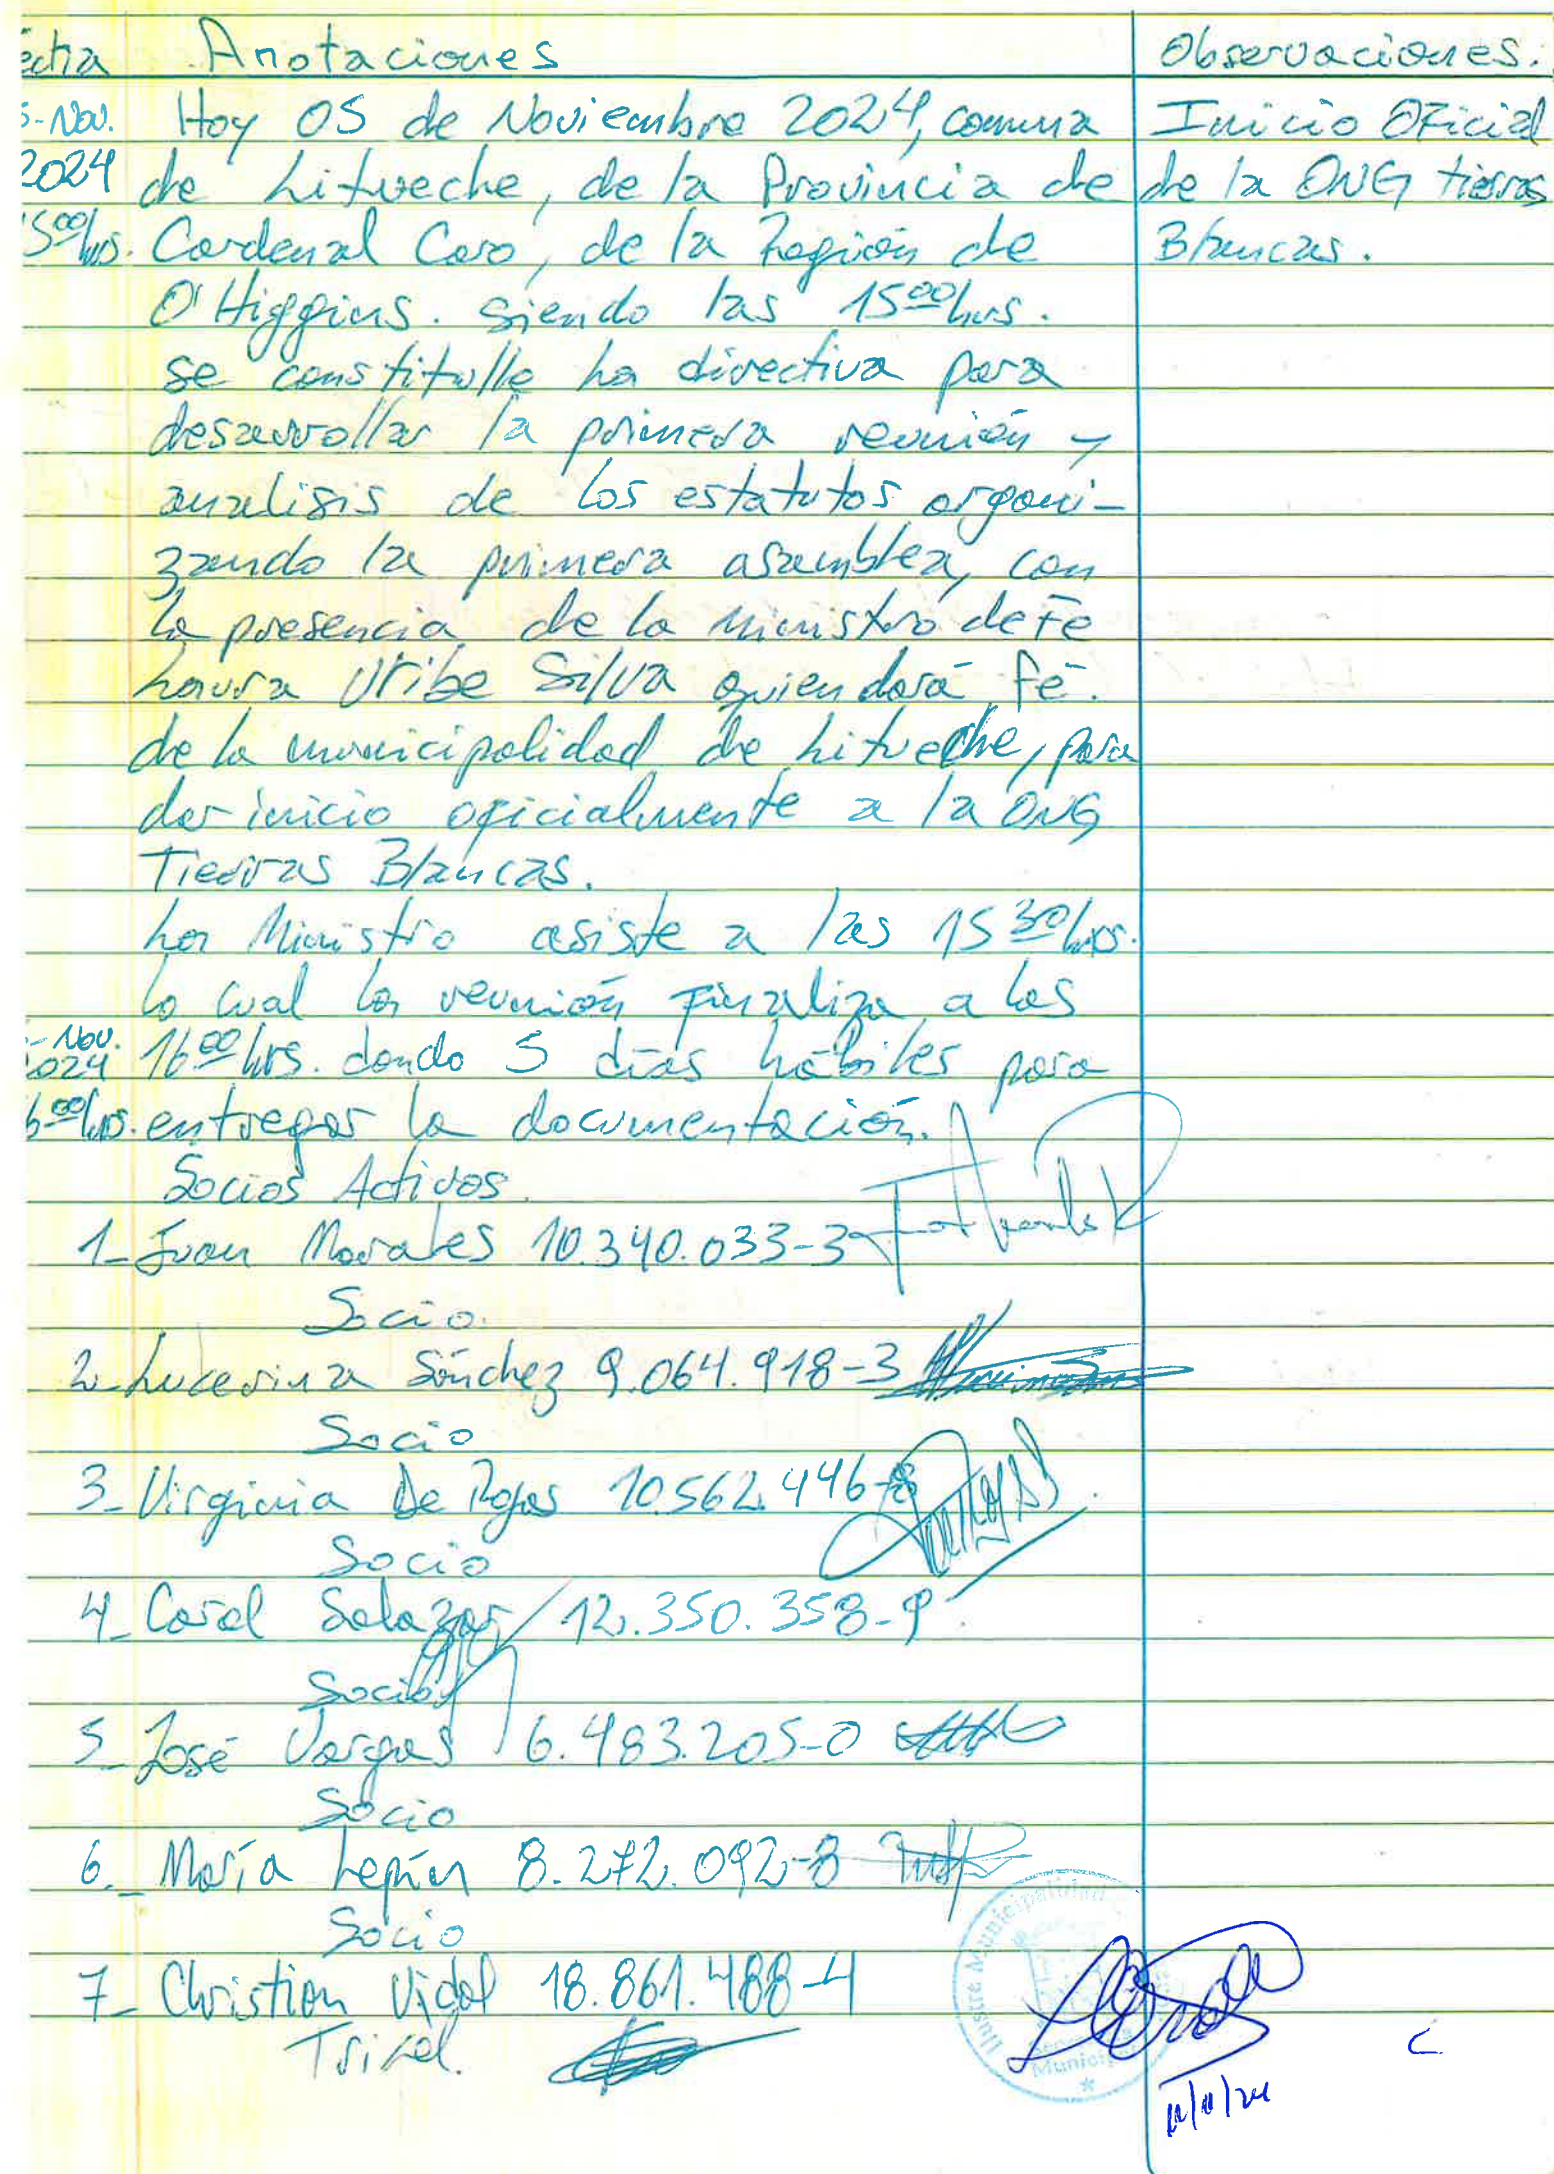 echa Anotaciones Observaciones.
5-Nov. Hoy 05 de Noviembre 2024, comuna Inicio Oficial
2024 de Litueche, de la Provincia de de la ONG tierras
15:00 hrs. Cardenal Caro, de la Región de Blancas.
O'Higgins. siendo las 15:00 hrs.
se constitulle La directiva para
desarrollar la primera reunión y
analisis de los estatutos organi-
zando la primera asamblea, con
la presencia de la ministro de Fe
Laura Uribe Silva quien dará fé.
de la municipalidad de Litueche, para
dar inicio oficialmente a la ONG
Tierras Blancas.
La Ministro asiste a las 15:30 hrs.
lo cual la reunión Finaliza a las
-Nov.
2024 16:00 hrs. dando 5 días hábiles para
6:00 hrs. entregar la documentación.
Socios Activos.
1- Juan Morales 10.340.033-3
Socio.
2- Lucerinza Sánchez 9.064.918-3
Socio
3- Virginia De Rojas 10.562.446-8
Socio
4- Carol Salazar 12.350.358-9
Socio
5- José Vargas 6.483.205-0
Socio
6.- María Lepín 8.272.092-8
Socio
7- Christian Vidal 18.861.488-4
Tricel.
Ilustre Municipalidad
Municipal